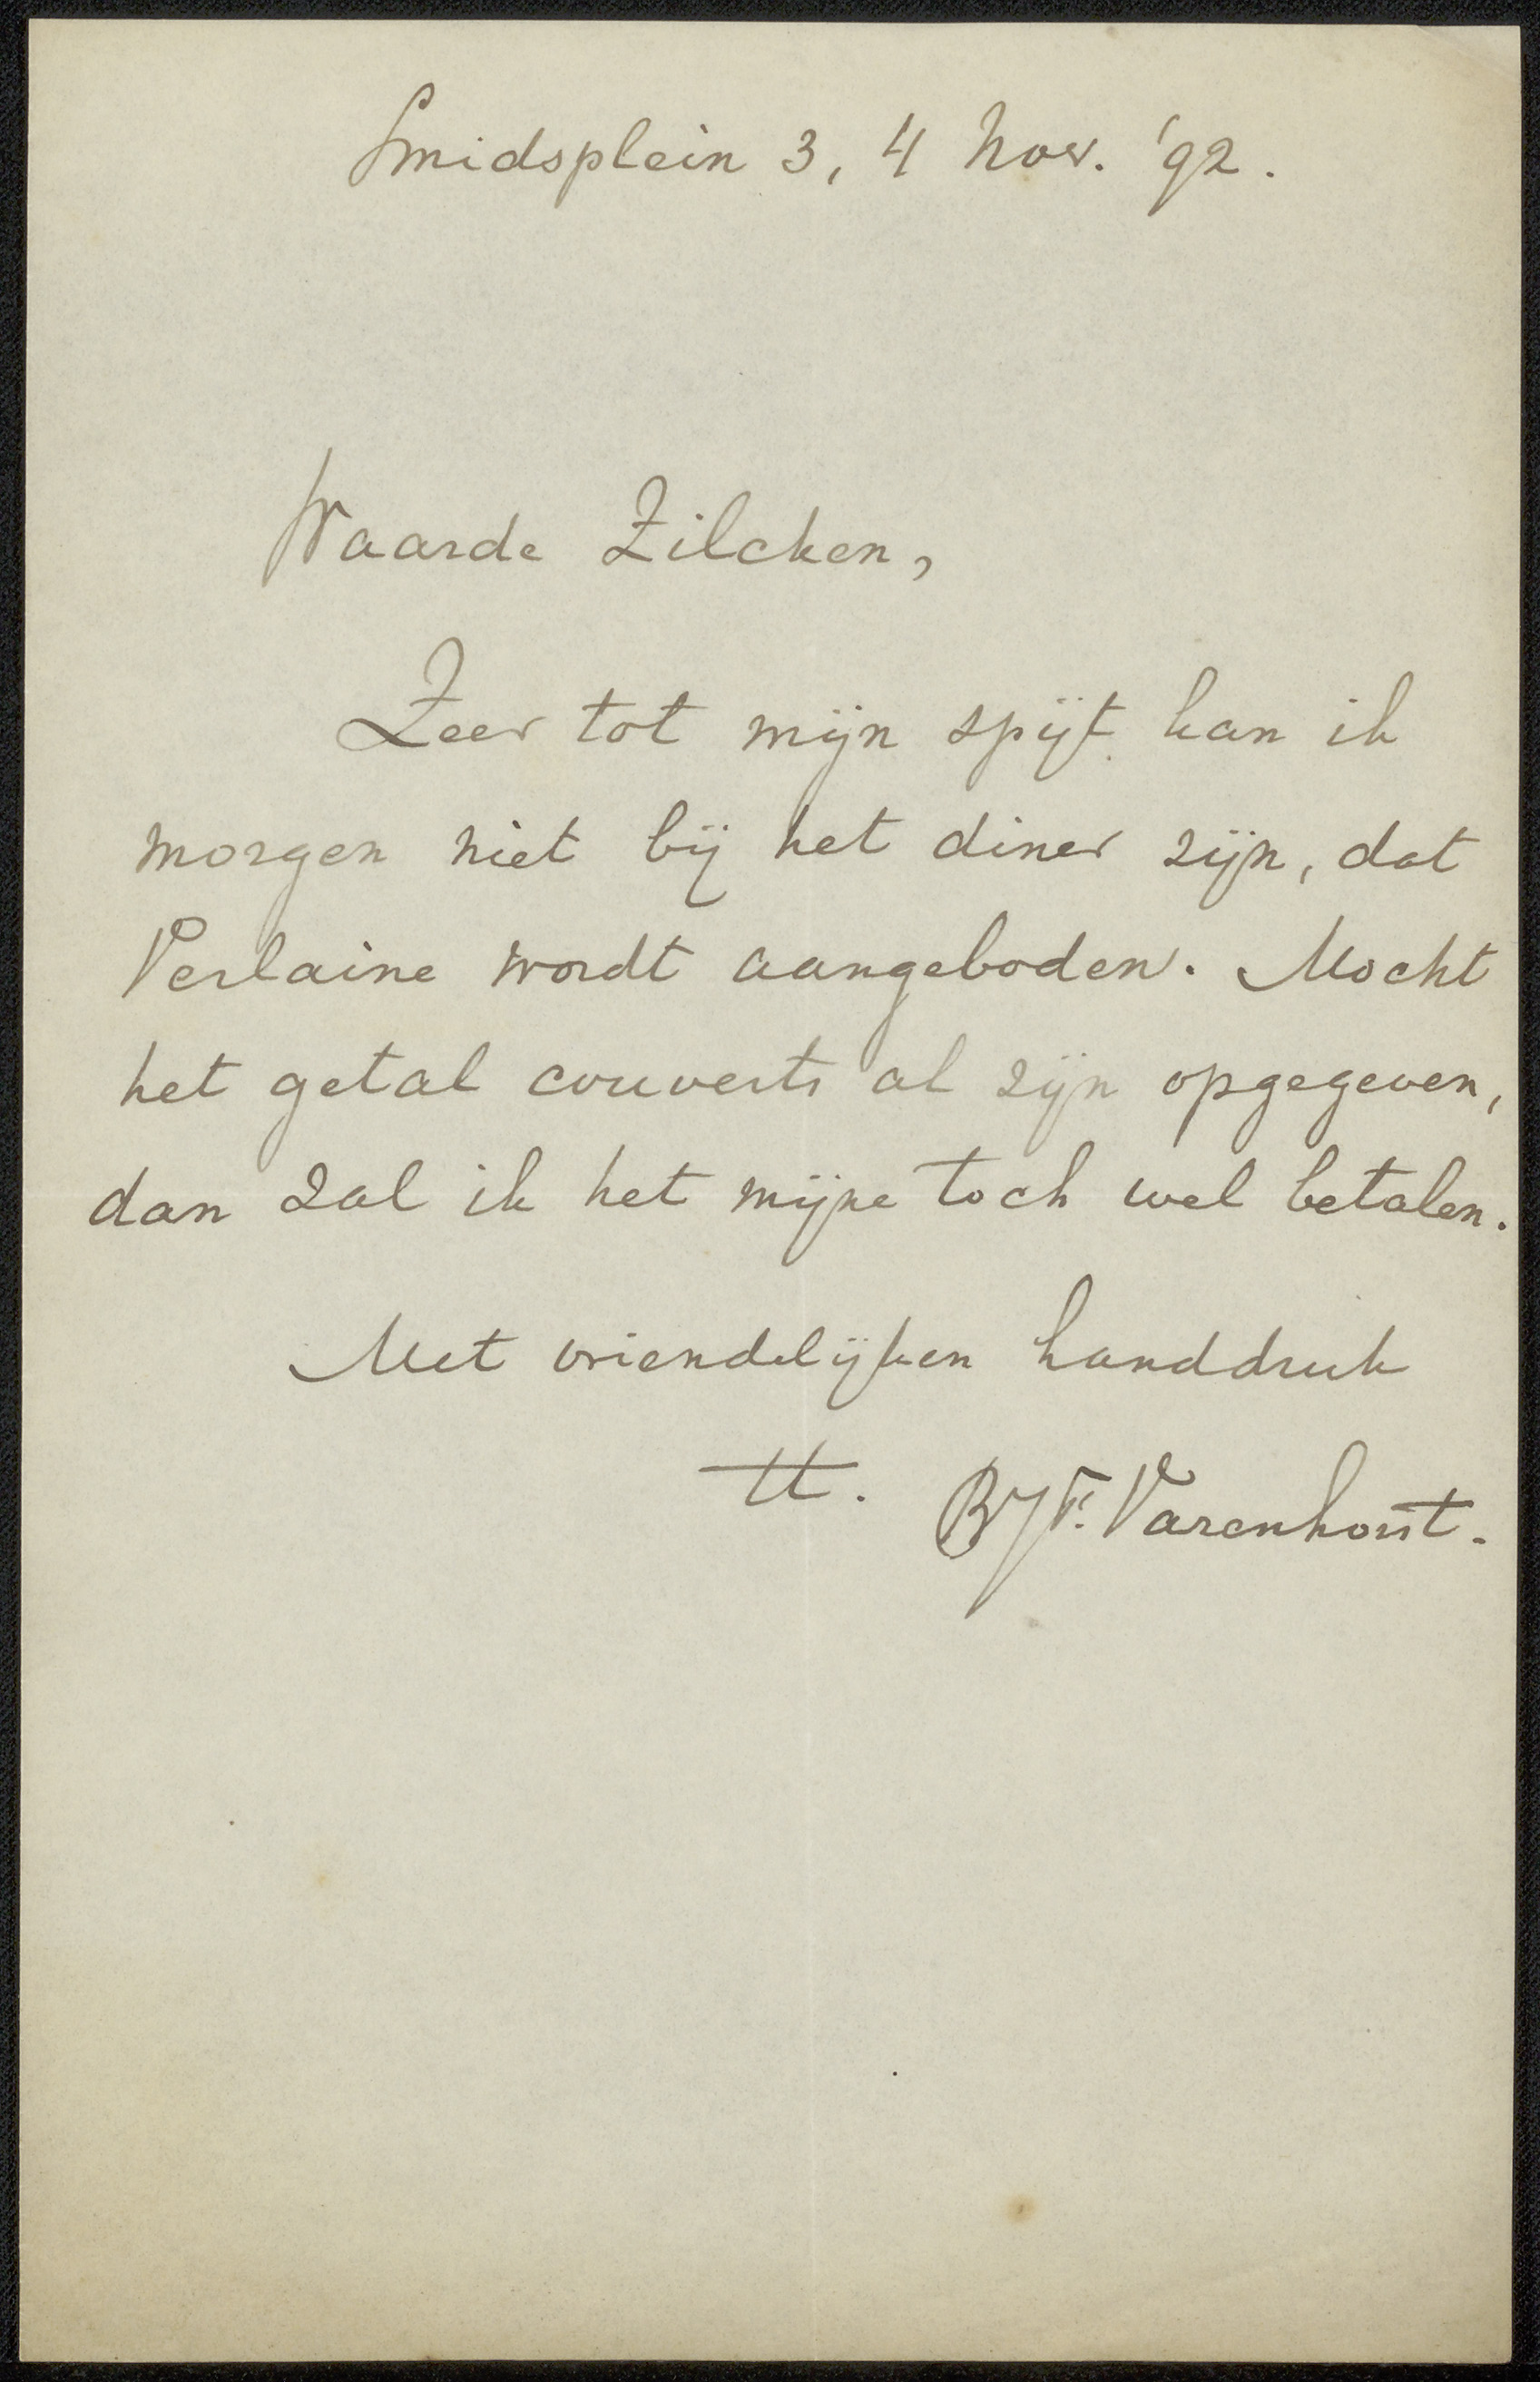 Smidsplein 3, 4 Nov. '92.
Waarde Zilcken,
Zeer tot mijn spijt kan ik
morgen niet bij het diner zijn, dat
Verlaine wordt aangeboden. Mocht
het getal couverts al zijn opgegeven,
dan zal ik het mijne toch wel betalen.
Met vriendelijken handdruk
tt.